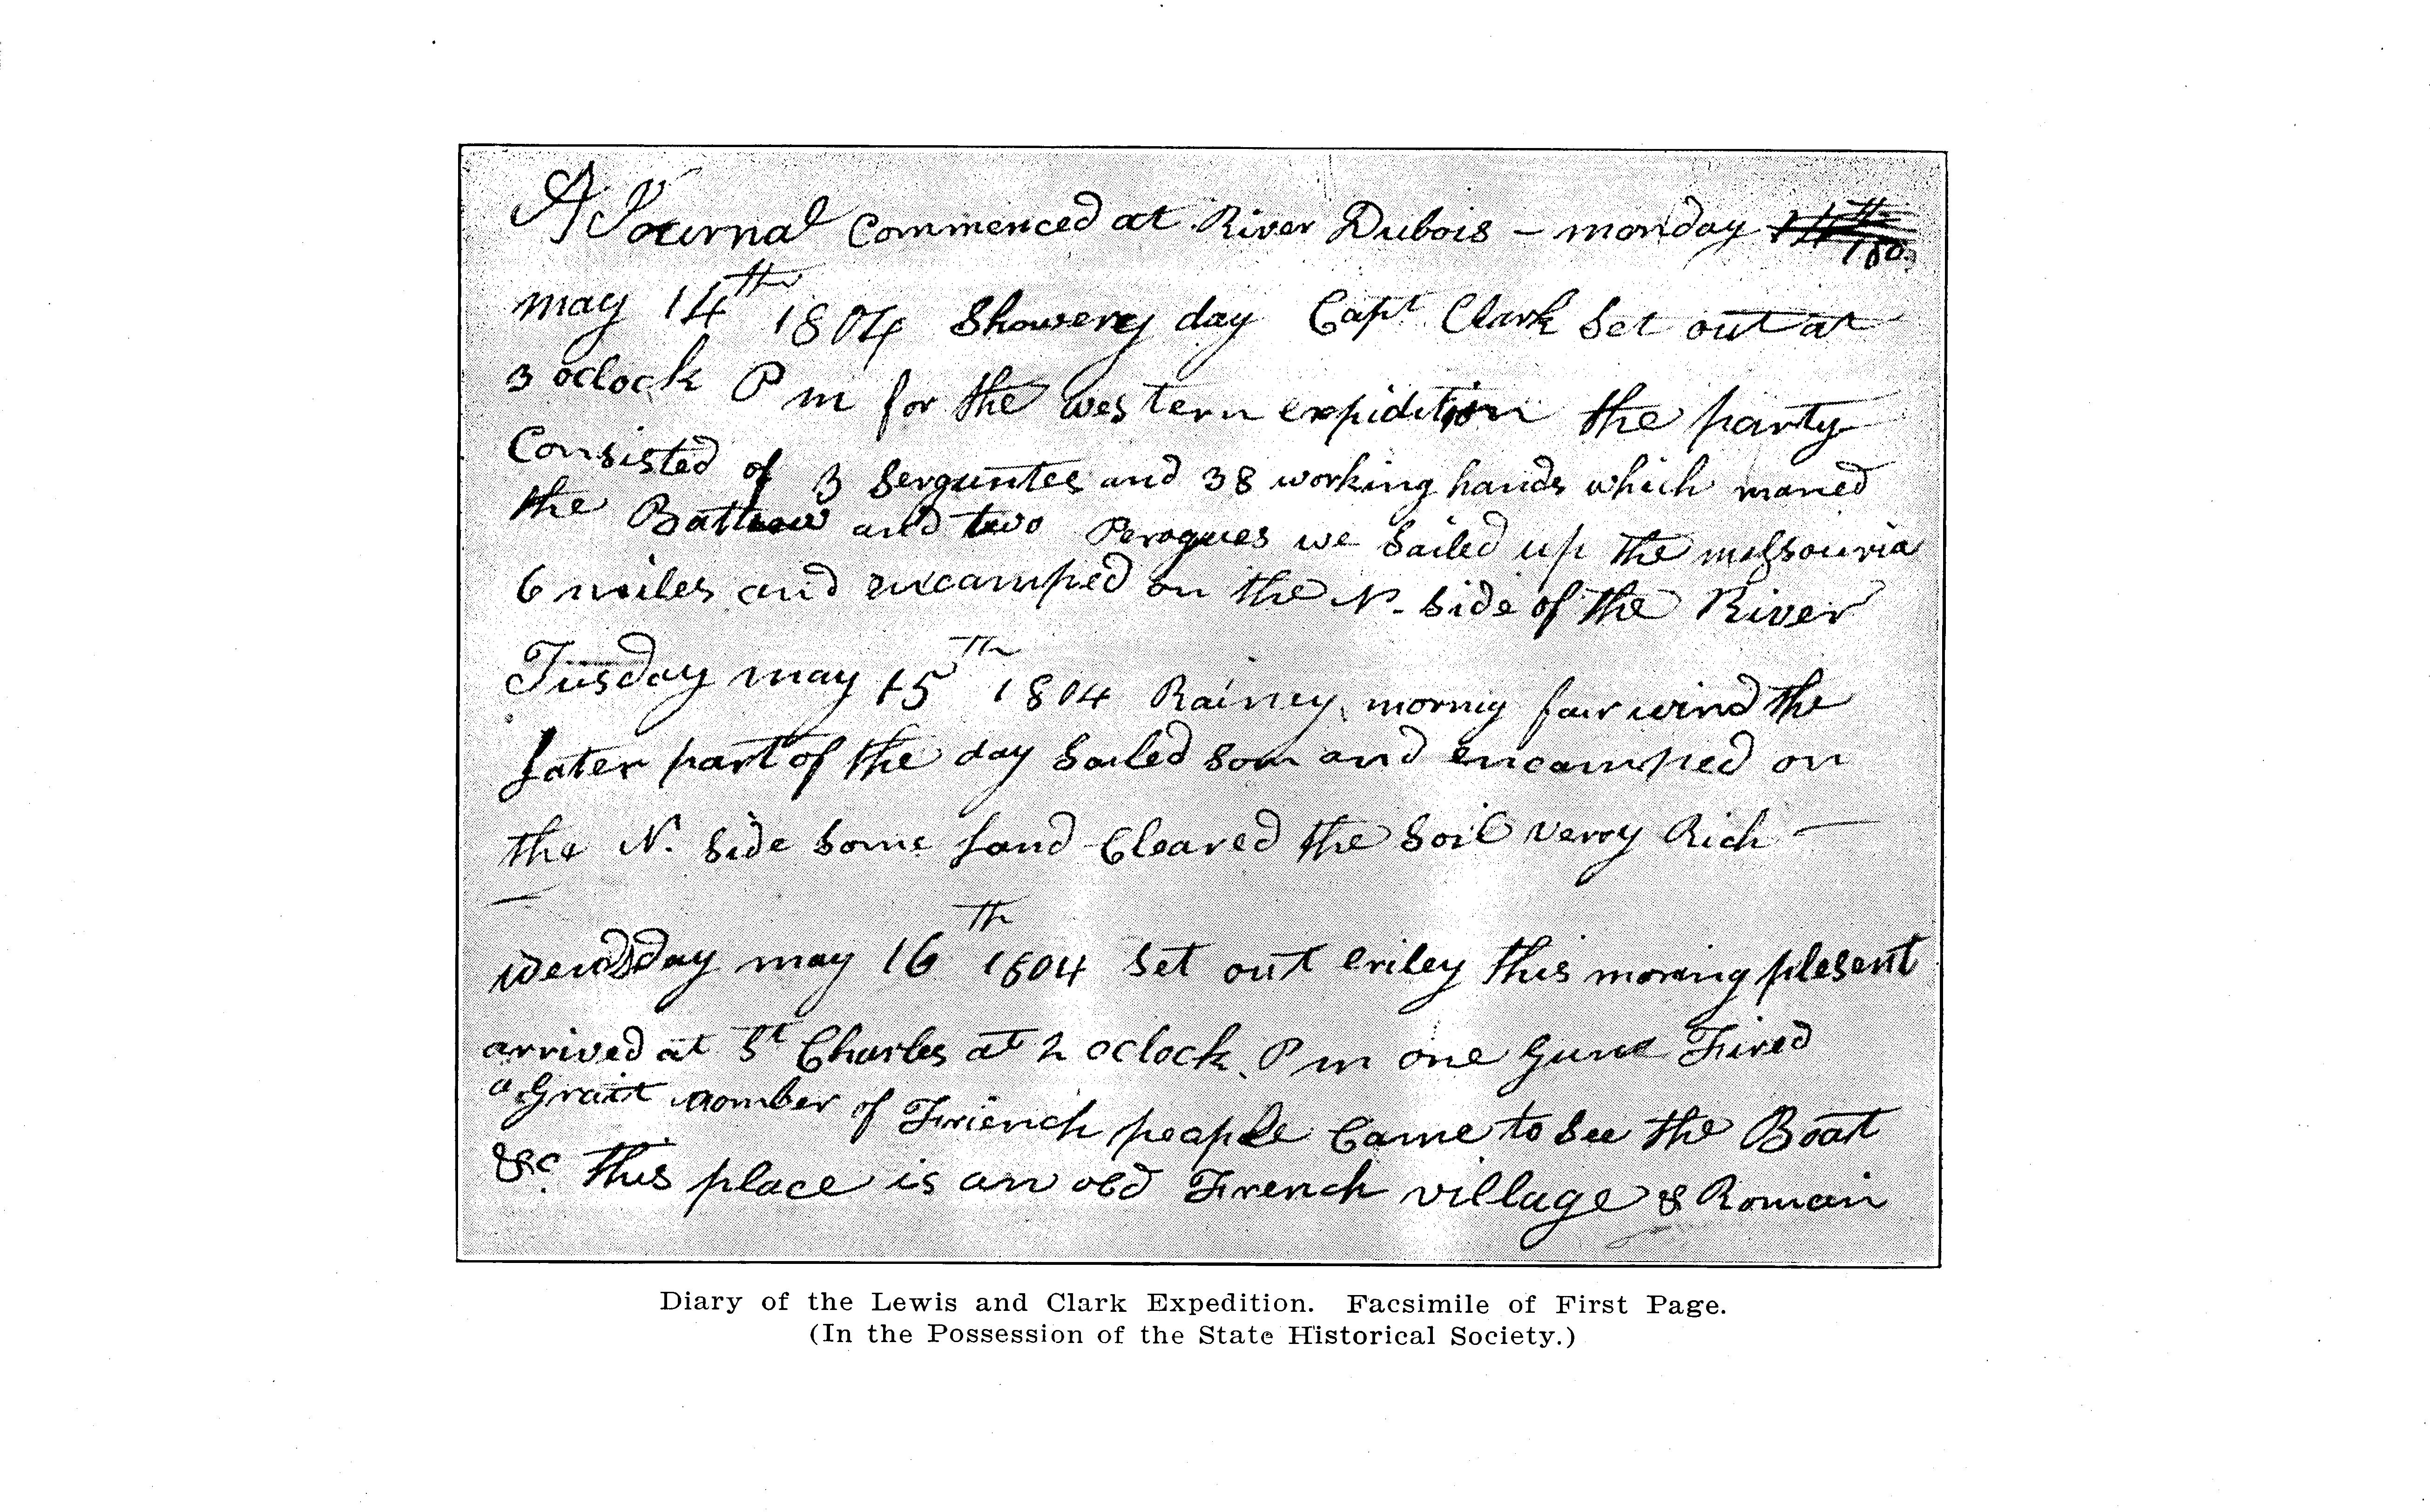 A Journal Commenced at River Dubois – monday 14th 180
may 14th 1804 Showery day Capt Clark Set out at
3 oclock P m for the western expidition the party
Consisted of 3 Serguntes and 38 working hands which maned
the Batteow and two Perogues we Sailed up the missouria
6 miles and encamped on the N. Side of the River
Tusday may 15th 1804 Rainey morning fair wind the
later part of the day Sailed som and encamped on
the N. Side Some land Cleared the Soil verry Rich —
—
Wendsday may 16th 1804 Set out eriley this morning plesent
arrived at St Charles at 2 oclock P m one Gunn Fired
a Grait nomber of Friench people Came to see the Boat
&c. this place is an old French village & Roman
Diary of the Lewis and Clark Expedition. Facsimile of First Page.
(In the Possession of the State Historical Society.)